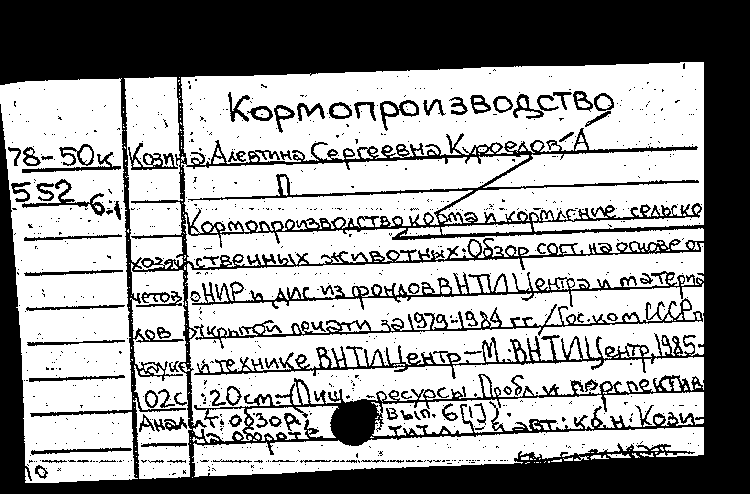 Кормопроизводство
78-50к Козина, Алевтина Сергеевна, Куроедов, А
552 П
6-1
Кормопроизводство корма и кормление сельско
хозяйственных животных: Обзор сост. на основе от
четов о НИР и дис из фондов ВНТИЦентра и материа
лов открытой печати за 1979-1984 гг. / Гос. ком. СССР п
науке и технике, ВНТИЦентр - М. ВНТИЦентр, 1985-
102с : 20см - (Пищ. -ресурсы. Пробл. и перспектив
Аналит. обзор; Вып. 6(1)).
На обороте тит. л. 1-й авт.: к.б.н. Кози-
10